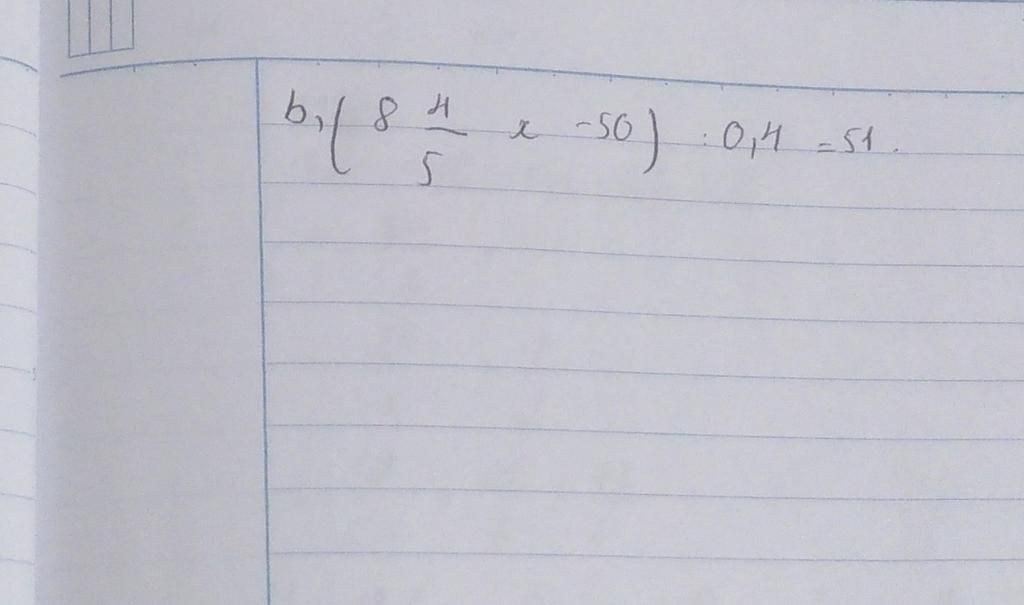 b, ( 8 4/5 x - 50 ) : 0,4 = 51.